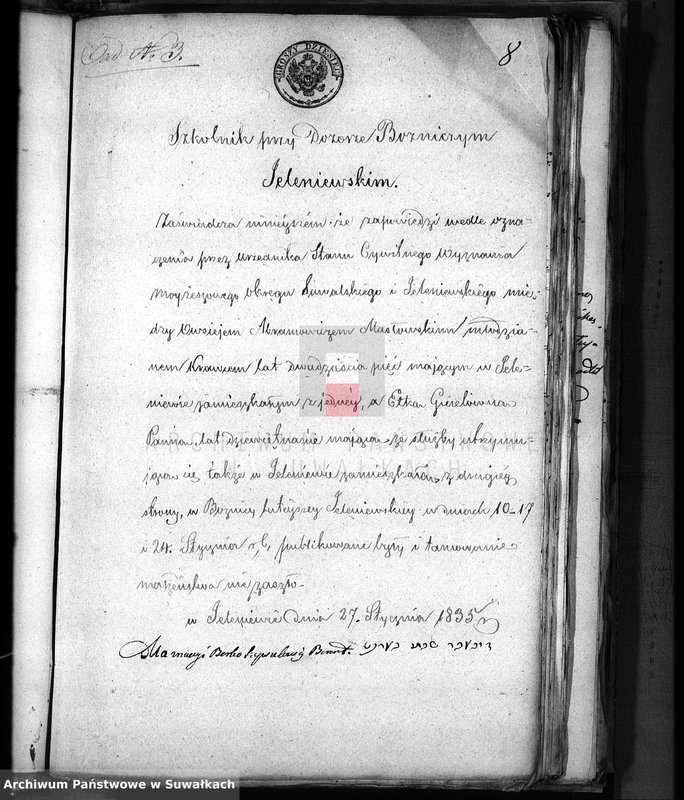 Ad N. 3.
8
GROSZY DZIESIĘĆ
Szkolnik przy Dozorze Bozniczym
Jeleniewskim.
Zaświadcza ninieyszém że zapowiedzi wedle ozna-
czenia przez Urzednika Stanu Cywilnego Wyznania
Moyżeszowego Okręgu Suwalskiego i Jeleniewskiego mie-
dzy Owsiejem Abramowiczem Masłowskim młodzia-
nem Krawcem lat dwadzieścia pięć mającym w Jele-
niewie zamieszkałym z jednéy, a Etka Gicelówna
Panna, lat dziewiętnaście mająca ze służby utrzymu-
jąca się także w Jeleniewie zamieszkała z drugiéy
strony, w Boznicy tuteyszey Jeleniewskiey w dniach 10-17
i 24. Stycznia r. b. publikowane były i tamowanie
małżeństwa nie zaszło.
w Jeleniewie dnia 27. Stycznia 1835 r.
Berko
Archiwum Państwowe w Suwałkach